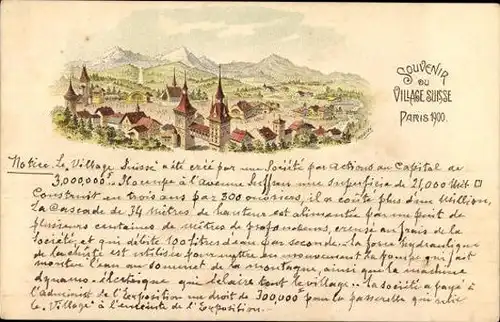 Souvenir
du
Village Suisse
Paris 1900.
Notice. Le Village Suisse a été créé par une Société par Actions au Capital de
3,000,000 f. Il occupe à l'avenue Suffren une superficie de 21,000 Mèt □
Construit en trois ans par 300 ouvriers, il a coûté plus d'un Million,
La Cascade de 34 Mètres de hauteur est alimentée par un puit de
plusieurs centaines de mètres de profondeur, creusé au frais de la
Société, et qui débite 100 litres d'eau par seconde. La force hydraulique
de la chute est utilisée pour mettre en mouvement la pompe qui fait
monter l'eau au sommet de la montagne, ainsi que la machine
dynamo-électrique qui éclaire tout le village. La société a payé à
l'administ de l'Exposition un droit de 300,000 f pour la passerelle qui relie
le Village à l'enceinte de l'Exposition.